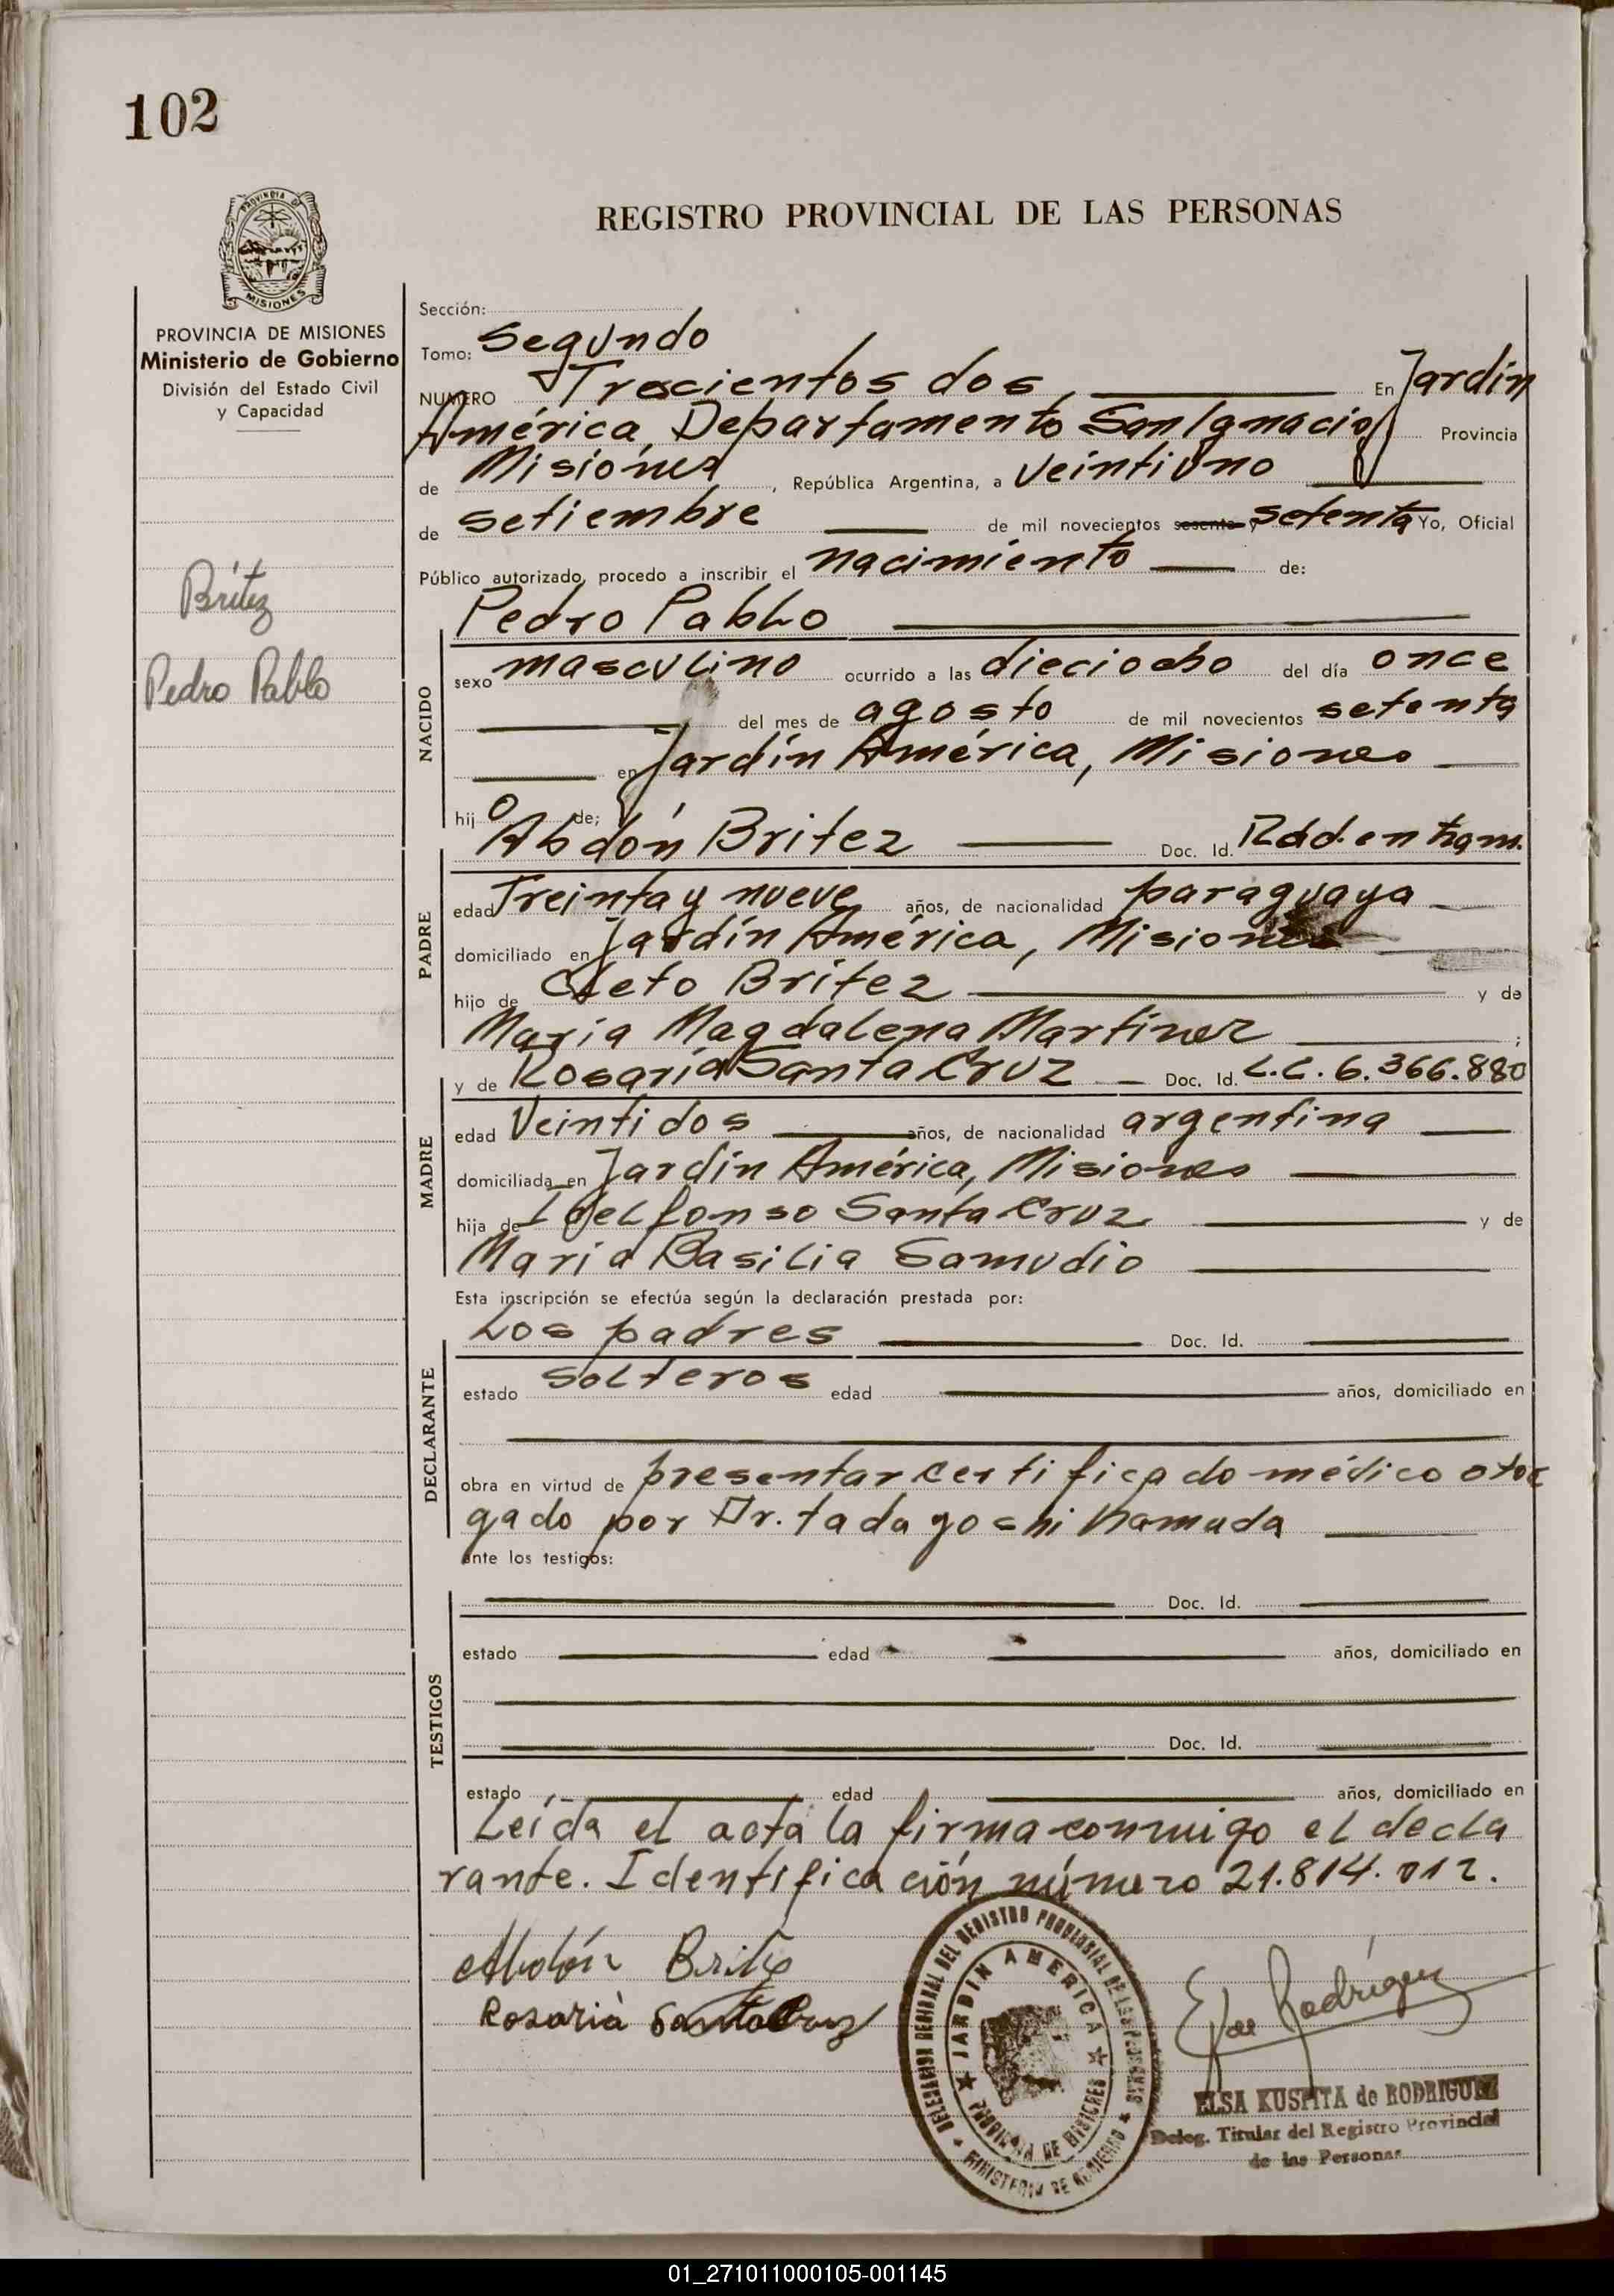 102
PROVINCIA DE
MISIONES
REGISTRO PROVINCIAL DE LAS PERSONAS
PROVINCIA DE MISIONES
Ministerio de Gobierno
División del Estado Civil
y Capacidad
Britez
Pedro Pablo
Sección:
Tomo: Segundo
NUMERO Trescientos dos, En Jardín
América, Departamento San Ignacio Provincia
de Misiones, República Argentina, a Veintiuno
de setiembre de mil novecientos sesenta y setenta Yo, Oficial
Público autorizado, procedo a inscribir el nacimiento de:
Pedro Pablo
NACIDO
sexo masculino ocurrido a las dieciocho del día once
del mes de agosto de mil novecientos setenta
en Jardín América, Misiones
hijo de;
Abdón Britez Doc. Id.
PADRE
edad Treinta y nueve años, de nacionalidad paraguaya
domiciliado en Jardín América, Misiones
hijo de Cleto Britez y de
María Magdalena Martinez ;
y de Rosaria Santa Cruz Doc. Id. L.C. 6.366.880
MADRE
edad Veintidos años, de nacionalidad argentina
domiciliada en Jardín América, Misiones
hija de Idelfonso Santa Cruz y de
María Basilia Samudio
Esta inscripción se efectúa según la declaración prestada por:
Los padres Doc. Id.
DECLARANTE
estado solteros edad años, domiciliado en
obra en virtud de presentar certificado médico otor
gado por Dr. tadayoshi hamada
ante los testigos:
TESTIGOS
Doc. Id.
estado edad años, domiciliado en
Doc. Id.
estado edad años, domiciliado en
Leída el acta la firma conmigo el decla
rante. Identificación número 21.814.012.
Abdón Britez
Rosaria Santa Cruz
DELEGACION GENERAL DEL REGISTRO PROVINCIAL DE LAS PERSONAS
JARDIN AMERICA
PROVINCIA DE MISIONES
MINISTERIO DE GOBIERNO
E. de Rodríguez
ELSA KUSPITA de RODRIGUEZ
Deleg. Titular del Registro Provincial
de las Personas
01_271011000105-001145